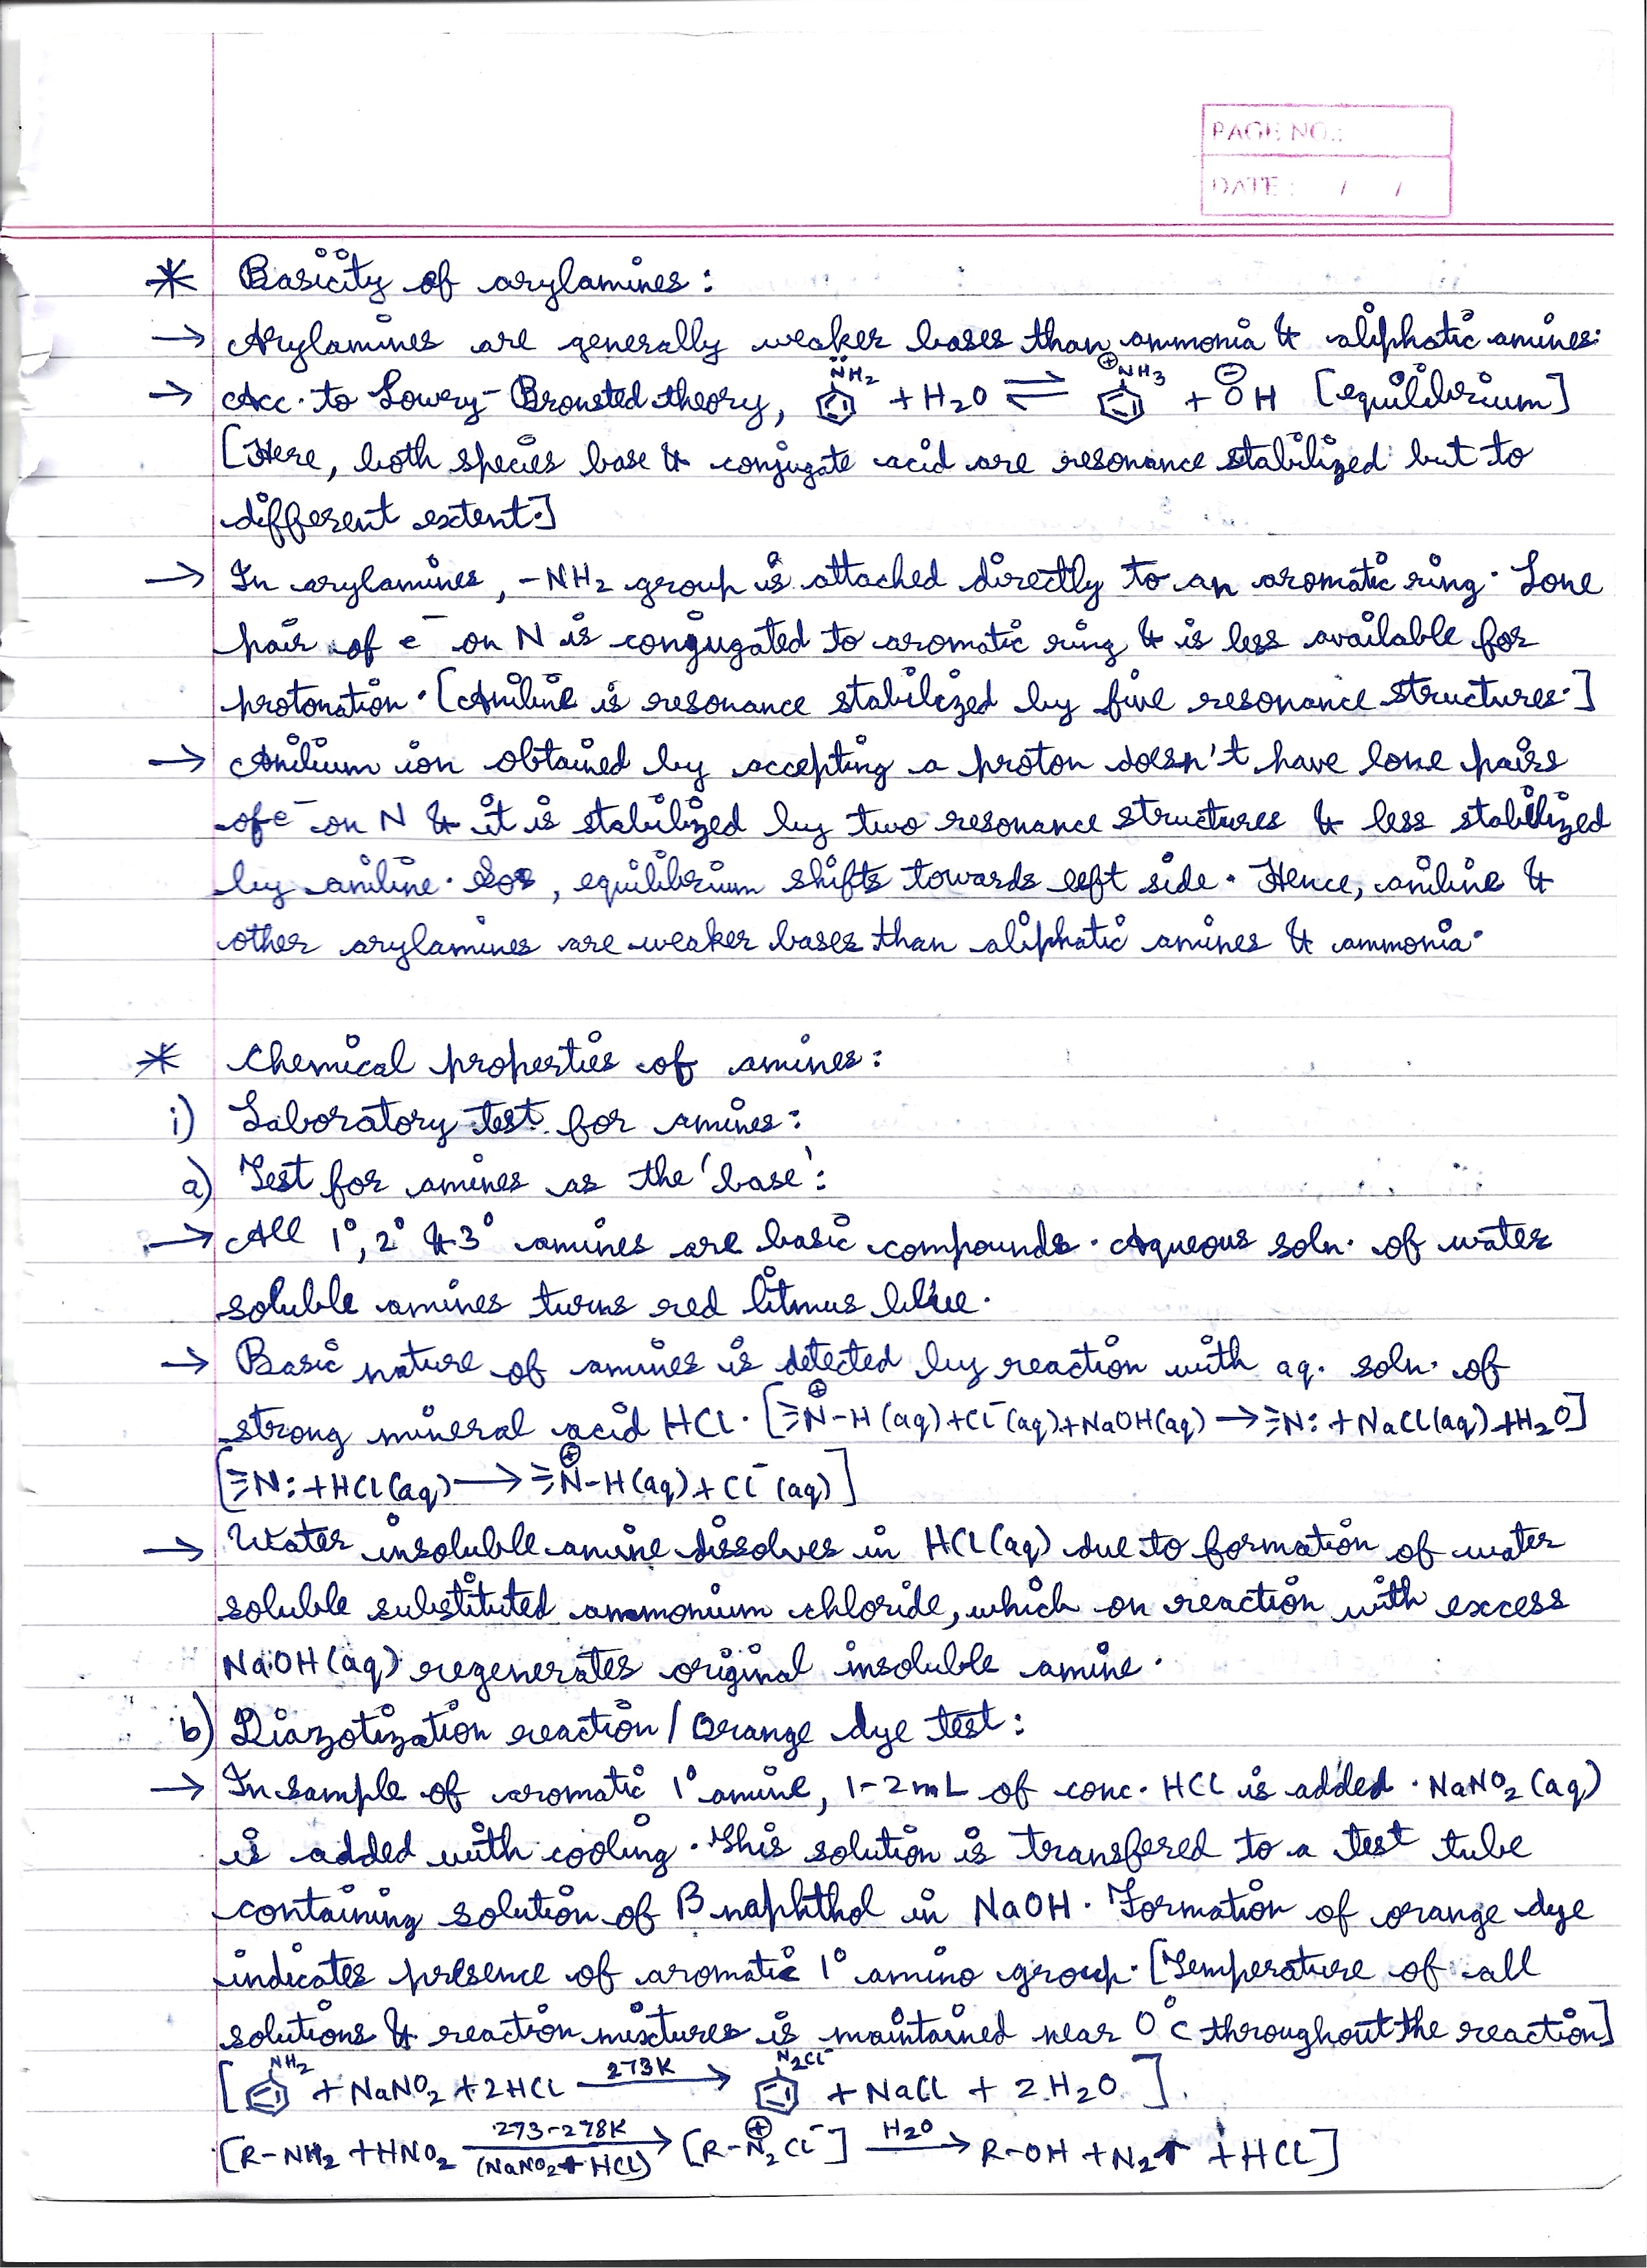 PAGE NO.:
DATE : / /
* Basicity of arylamines:
→ Arylamines are generally weaker bases than ammonia & aliphatic amines.
→ Acc. to Lowry-Bronsted theory, N̈H₂ + H₂O ⇌ ⊕NH₃ + ⊖OH [equilibrium]
[Here, both species base & conjugate acid are resonance stabilized but to
different extent.]
→ In arylamines, -NH₂ group is attached directly to an aromatic ring. Lone
pair of e⁻ on N is conjugated to aromatic ring & is less available for
protonation. [Aniline is resonance stabilized by five resonance structures.]
→ Anilium ion obtained by accepting a proton doesn't have lone pairs
of e⁻ on N & it is stabilized by two resonance structures & less stabilized
by aniline. So, equilibrium shifts towards left side. Hence, aniline &
other arylamines are weaker bases than aliphatic amines & ammonia.
* Chemical properties of amines:
i) Laboratory test for amines:
a) Test for amines as the 'base':
→ All 1°, 2° & 3° amines are basic compounds. Aqueous soln. of water
soluble amines turns red litmus blue.
→ Basic nature of amines is detected by reaction with aq. soln. of
strong mineral acid HCl. [≡N⊕-H (aq) + Cl⁻ (aq) + NaOH(aq) → ≡N: + NaCl(aq) + H₂O]
[≡N: + HCl(aq) → ≡N⊕-H(aq) + Cl⁻ (aq)]
→ Water insoluble amine dissolves in HCl(aq) due to formation of water
soluble substituted ammonium chloride, which on reaction with excess
NaOH(aq) regenerates original insoluble amine.
b) Diazotization reaction / Orange dye test:
→ In sample of aromatic 1° amine, 1-2 mL of conc. HCl is added. NaNO₂ (aq)
is added with cooling. This solution is transfered to a test tube
containing solution of β naphthol in NaOH. Formation of orange dye
indicates presence of aromatic 1° amino group. [Temperature of all
solutions & reaction mixtures is maintained near 0°C throughout the reaction]
[NH₂ + NaNO₂ + 2HCl 273K → N₂Cl⁻ + NaCl + 2H₂O].
[R-NH₂ + HNO₂ 273-278K (NaNO₂ + HCl) → [R-N⊕₂ Cl⁻] H₂O → R-OH + N₂↑ + HCl]